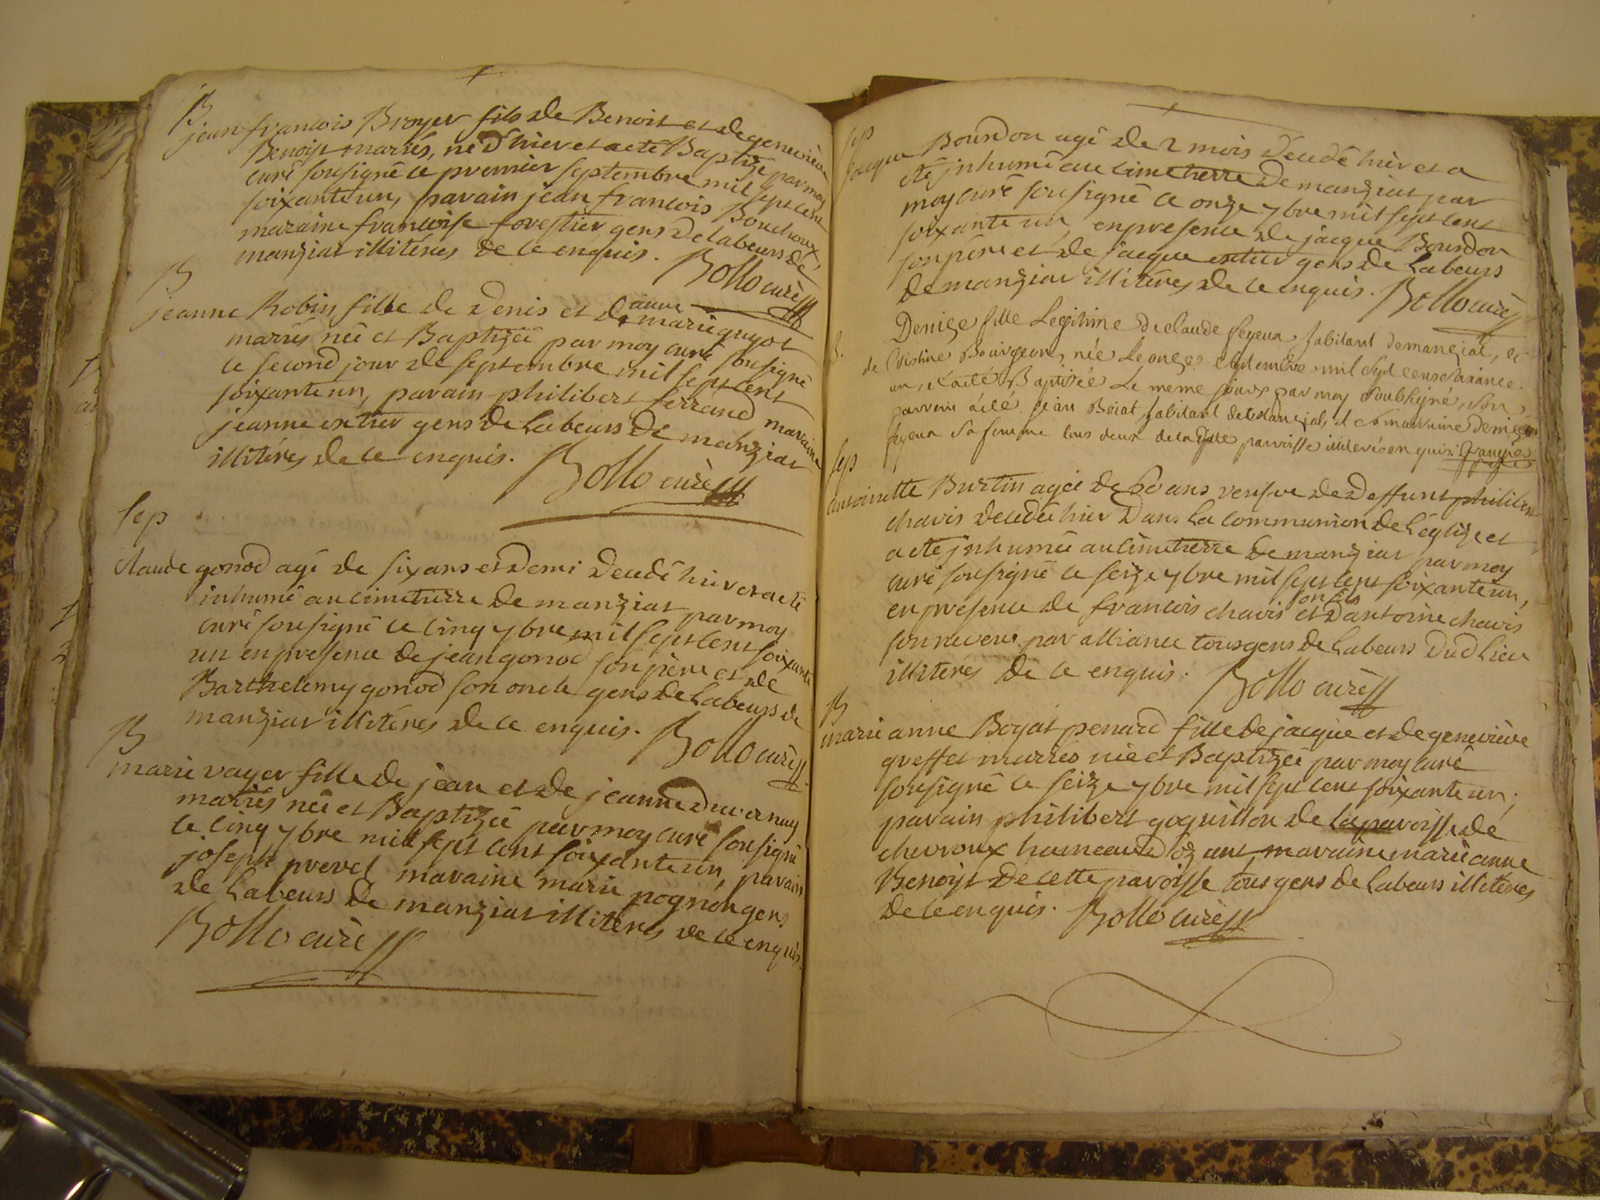 B
jean francois Broyer fils de Benoit et de genevieve
Benoist mariés, né d'hier et a eté Baptizé par moy
curé sousigné le premier septembre mil sept cent
soixante un, parain jean francois Bouchoux,
maraine francoise forestier gens de labeurs de
manziat illitéres de ce enquis. Bollo curé
B
jeanne Robin fille de denis et de anne marie guyot
mariés née et Baptizée par moy curé sousigné
le second jour de septembre mil sept cent
soixante un, parain philibert ferrand maraine
jeanne extier gens de labeurs de manziat
illitéres de ce enquis. Bollo curé
Sep
claude gonod agé de six ans et demi decedé hier et a eté
inhumé au cimetierre de manziat par moy
curé sousigné le cinq 7bre mil sept cent soixante
un en presence de jean gonod son pere et de
Barthelemy gonod son oncle gens de labeurs de
manziat illitéres de ce enquis. Bollo curé
B
marie voyer fille de jean et de jeanne duvernay
mariés née et Baptizée par moy curé sousigné
le cinq 7bre mil sept cent soixante un, parain
joseph prevel maraine marie pognon gens
de labeurs de manziat illitéres de ce enquis
Bollo curé
Sep
jacque Bourdon agé de 2 mois decedé hier et a
eté inhumé au cimetierre de manziat par
moy curé sousigné le onze 7bre mil sept cent
soixante un, en presence de jacque Bourdon
son pere et de jacque extier gens de labeurs
de manziat illitéres de ce enquis. Bollo curé
B.
Denize fille Legitime de claude feyeux habitant de manziat, et
de Cristine Bourgeon, née le onze septembre mil sept cens soixante
un, et a été Baptizée le meme jour par moy soubsigné, son
parrein a été jean Boiat habitant de manziat, et sa marraine denize
feyeux sa femme tous deux de la parroisse
Sep
antoinette Burtin agée de 60 ans veufve de deffunt philibert
chavis decedée hier dans la communion de l'église et
a eté inhumée au cimetierre de manziat par moy
curé sousigné le seize 7bre mil sept cent soixante un,
en presence de francois chavis son fils et d'antoine chavis
son neveu par alliance tous gens de labeurs dud lieu
illitéres de ce enquis. Bollo curé
B
marie anne Boyat penard fille de jacque et de genevieve
greffet mariés née et Baptizée par moy curé
sousigné le seize 7bre mil sept cent soixante un;
parain philibert goguillon de la paroisse de
chevroux hameau d'ozant maraine marie anne
Benoist de cette paroisse tous gens de labeurs illitéres
de ce enquis. Bollo curé